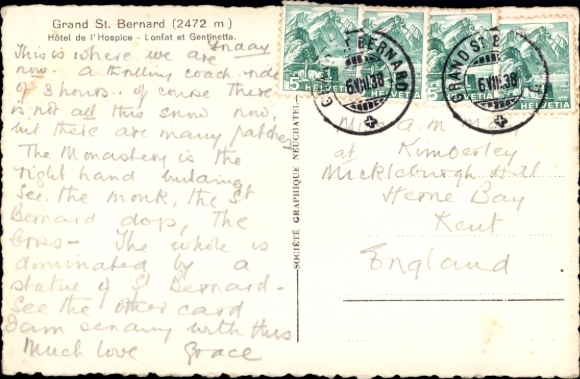 Grand St. Bernard (2472 m)
Hôtel de l'Hospice - Lonfat et Gentinetta.
Friday
This is where we are
now. A thrilling coach ride
of 3 hours. of course there
is not all this snow now,
but there are many patches
The Monastery is the
right hand building
See the monk, the St
Bernard dogs, the
Cross - The whole is
dominated by a
statue of St Bernard -
See the other card
I am sending with this
Much love Grace
SOCIÉTÉ GRAPHIQUE NEUCHATEL
5 HELVETIA
HELVETIA
5 HELVETIA
HELVETIA
GRAND ST BERNARD
6.VIII.38
GRAND ST B
6.VIII.38
at Kimberley
Mickleburgh Hill
Herne Bay
Kent
England